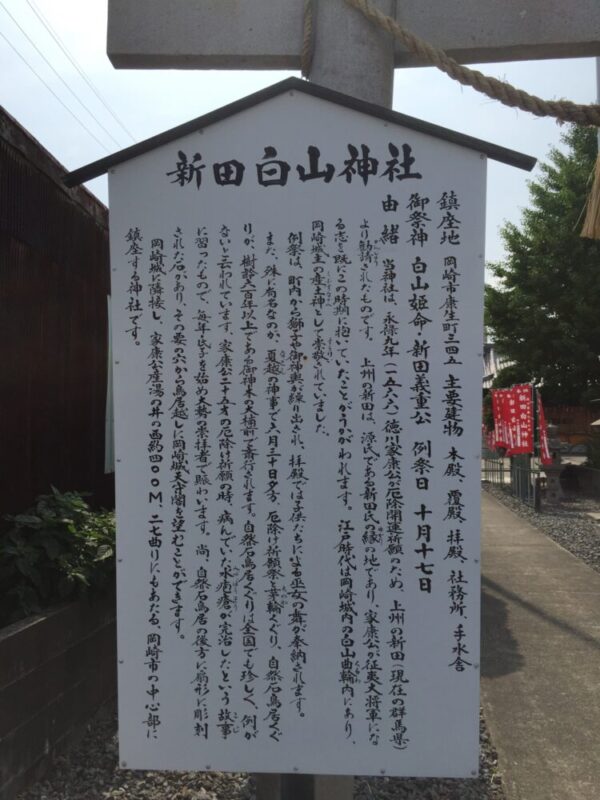 新田白山神社
鎮座地　岡崎市康生町三四五　主要建物　本殿、覆殿、拝殿、社務所、手水舎
御祭神　白山姫命・新田義重公　例祭日　十月十七日
由緒　当神社は、永禄九年（一五六六）徳川家康公が厄除開運祈願のため、上州の新田（現在の群馬県）
より勧請されたものです。　上州の新田は、源氏である新田氏の縁の地であり、家康公が征夷大将軍にな
る志を既にこの時期に抱いていたことがうかがわれます。江戸時代は岡崎城内の白山曲輪内にあり、
岡崎城主の産土神として崇敬されていました。
例祭は、町内から獅子御神輿が繰り出され、拝殿では子供たちによる巫女の舞が奉納されます。
また、殊に有名なのが、夏越の神事で六月三十日夕方、厄除け祈願祭と茅輪くぐり、自然石鳥居くぐ
りが、樹齢六百年以上である御神木の大楠前で斎行されます。自然石鳥居くぐりは全国でも珍しく、例が
ないと云われています。家康公二十五才の厄除け祈願の時、病んでいた水疱瘡が完治したという故事
に習ったもので、毎年氏子を始め大勢の崇拝者で賑わいます。尚、自然石鳥居の後方に扇形に彫刻
された石があり、その要の穴から鳥居越しに岡崎城天守閣を望むことができます。
岡崎城に隣接し、家康公産湯の井の西約四〇〇M、二七曲りにもあたる、岡崎市の中心部に
鎮座する神社です。
新田白山神社